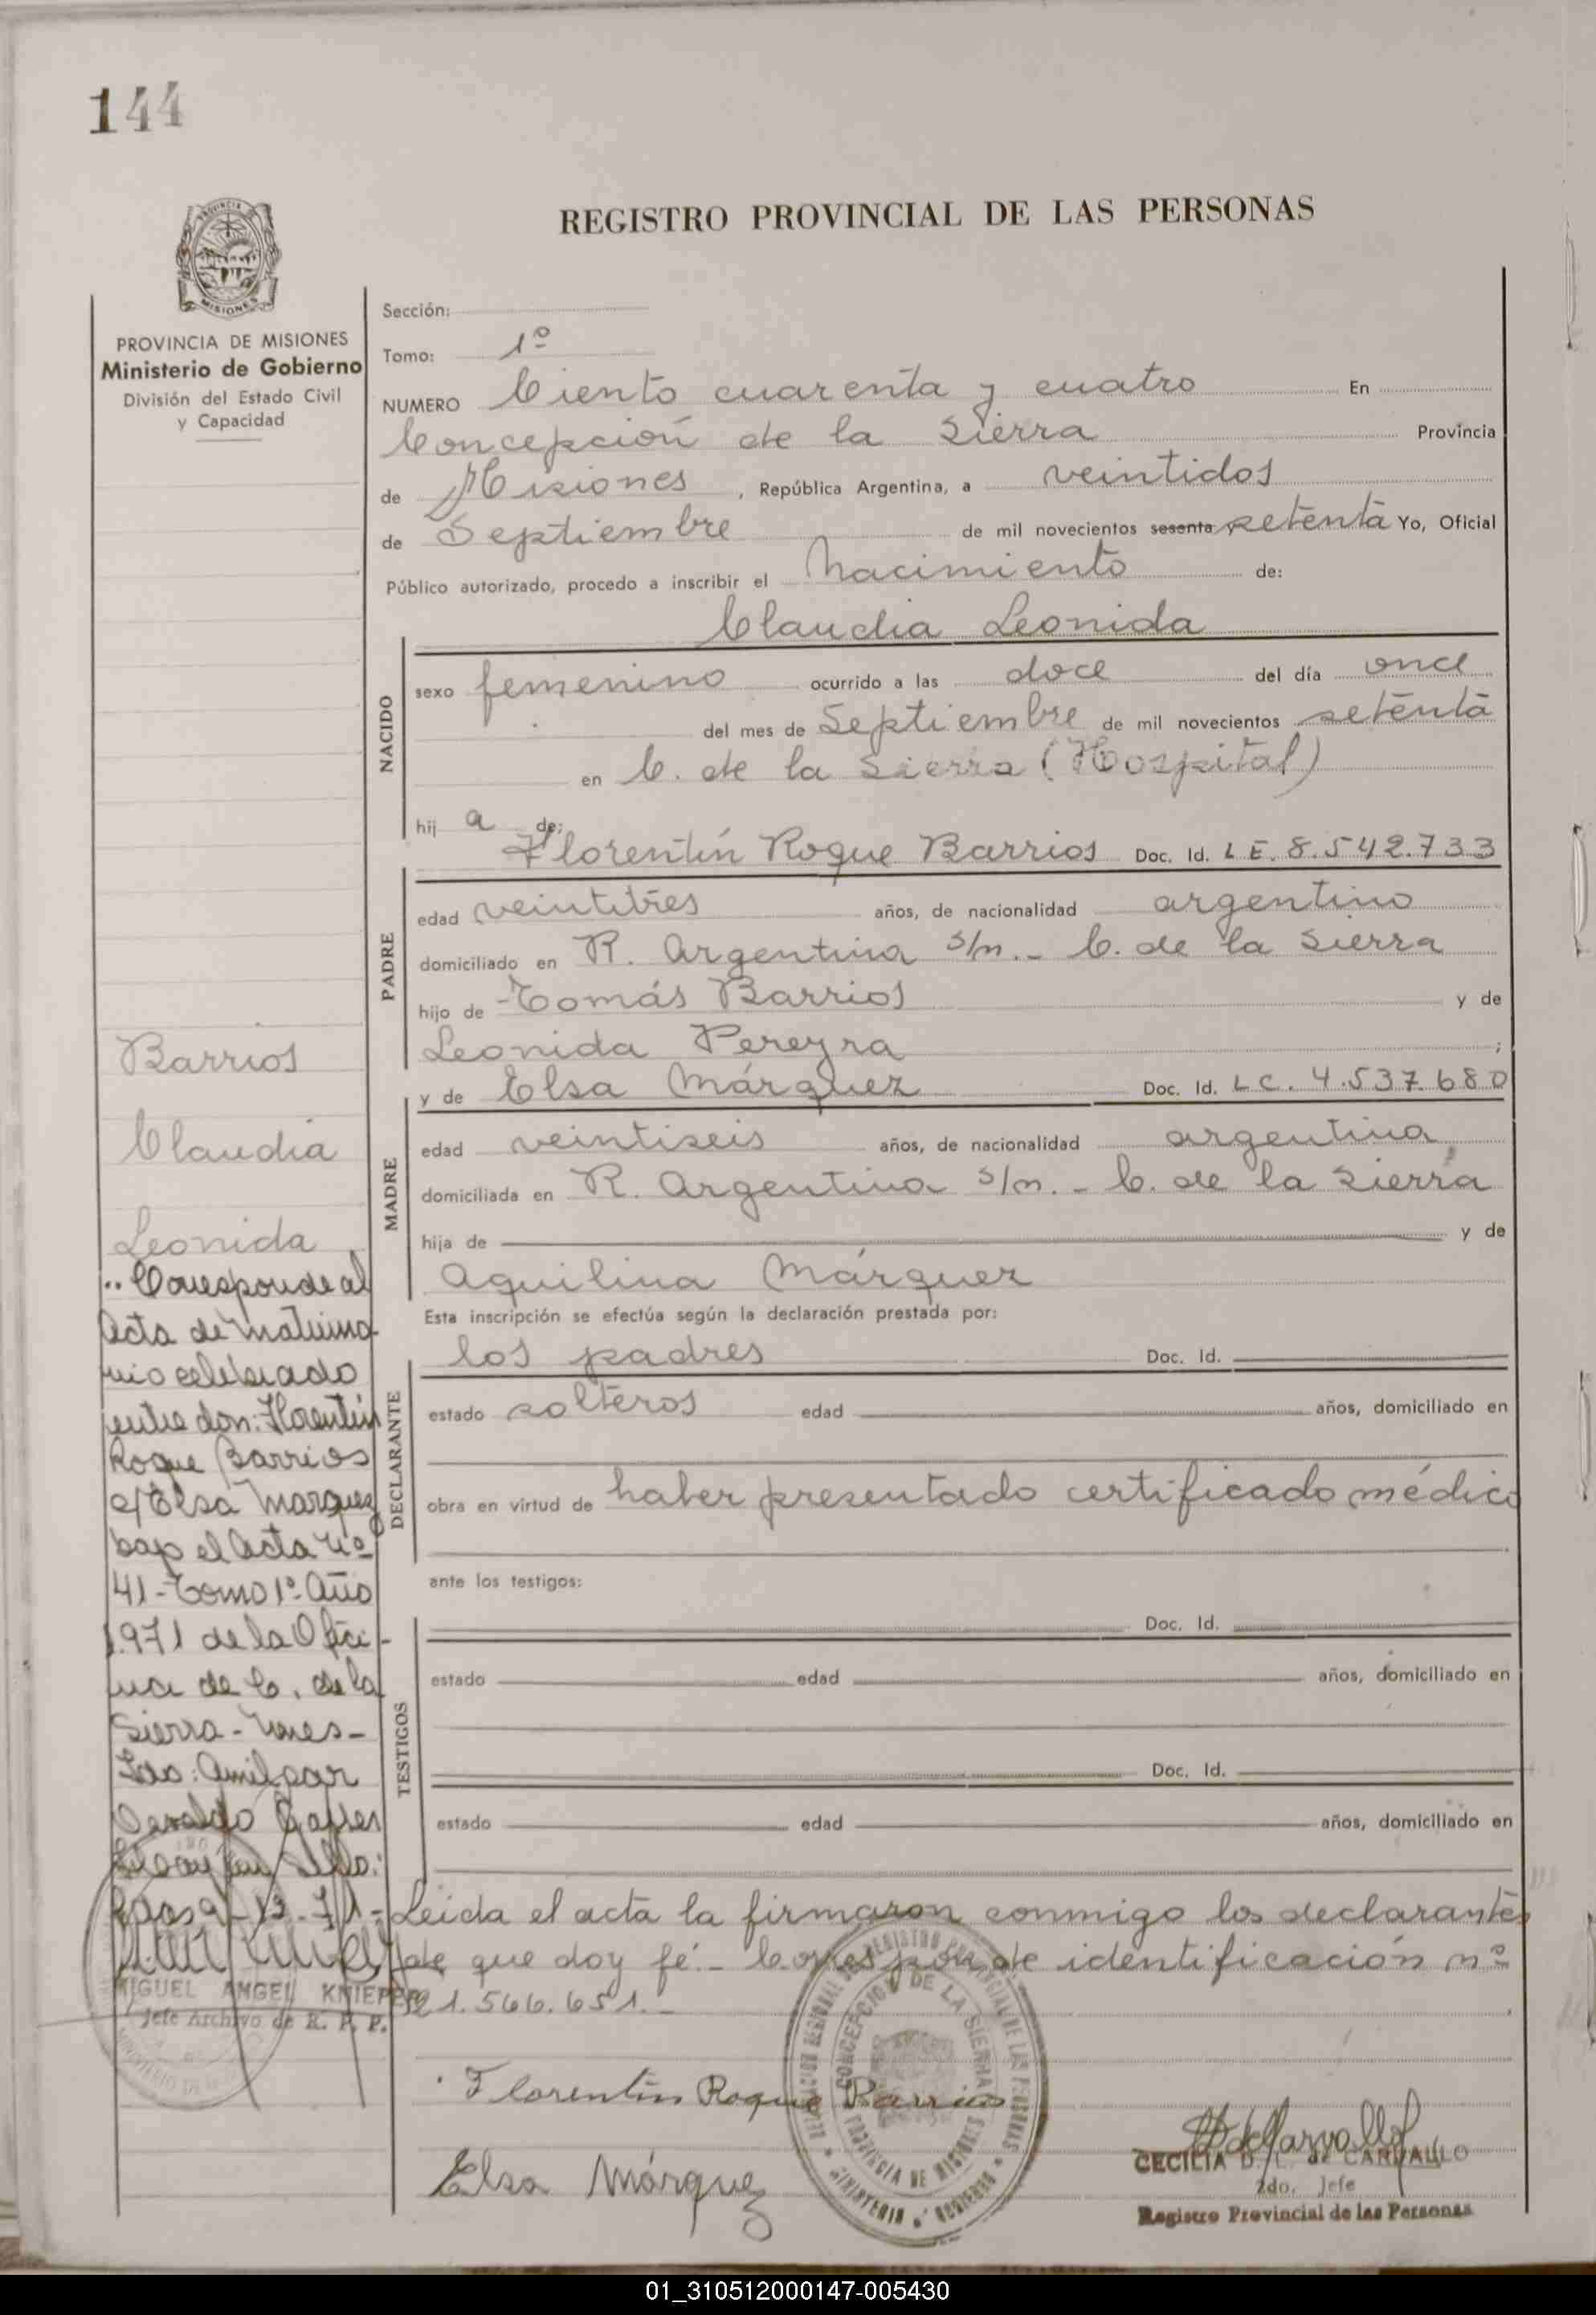 144
REGISTRO PROVINCIAL DE LAS PERSONAS
PROVINCIA DE MISIONES
Ministerio de Gobierno
División del Estado Civil
y Capacidad
Sección:
Tomo: 1º
NUMERO Ciento cuarenta y cuatro En
Concepción de la Sierra Provincia
de Misiones, República Argentina, a veintidos
de Septiembre de mil novecientos sesenta setenta Yo, Oficial
Público autorizado, procedo a inscribir el Nacimiento de:
Claudia Leonida
NACIDO
sexo femenino ocurrido a las doce del día once
del mes de Septiembre de mil novecientos setenta
en C. de la Sierra (Hospital)
hij a de:
Florentín Roque Barrios Doc. Id. L E. 8.542.733
PADRE
edad veintitres años, de nacionalidad argentino
domiciliado en R. Argentina s/n. - C. de la Sierra
hijo de Tomás Barrios y de
Leonida Pereyra ;
y de Elsa Márquez Doc. Id. L C. 4.537.680
MADRE
edad veintiseis años, de nacionalidad argentina
domiciliada en R. Argentina s/n. - C. de la Sierra
hija de y de
Aquilina Márquez
Esta inscripción se efectúa según la declaración prestada por:
los padres Doc. Id.
DECLARANTE
estado solteros edad años, domiciliado en
obra en virtud de haber presentado certificado médico
ante los testigos:
Doc. Id.
TESTIGOS
estado edad años, domiciliado en
Doc. Id.
estado edad años, domiciliado en
Leida el acta la firmaron conmigo los declarantes
de que doy fé. - Corresponde identificación nº
21.566.651. -
Florentín Roque Barrios
Elsa Márquez
CONCEPCION DE LA SIERRA
PROVINCIA DE MISIONES
CECILIA D. L. de CARVALLO
2do. Jefe
Registro Provincial de las Personas
Barrios
Claudia
Leonida
.. Corresponde al
Acta de matrimo-
nio celebrado
entre don: Florentín
Roque Barrios
c/ Elsa Marquez
bajo el Acta Nº
41 - Tomo 1º Año
1.971 de la Ofici-
na de C. de la
Sierra - Mnes -
Fdo: Amilcar
Osvaldo
MIGUEL ANGEL KNIEPER
Jefe Archivo de R. P. P.
01_310512000147-005430